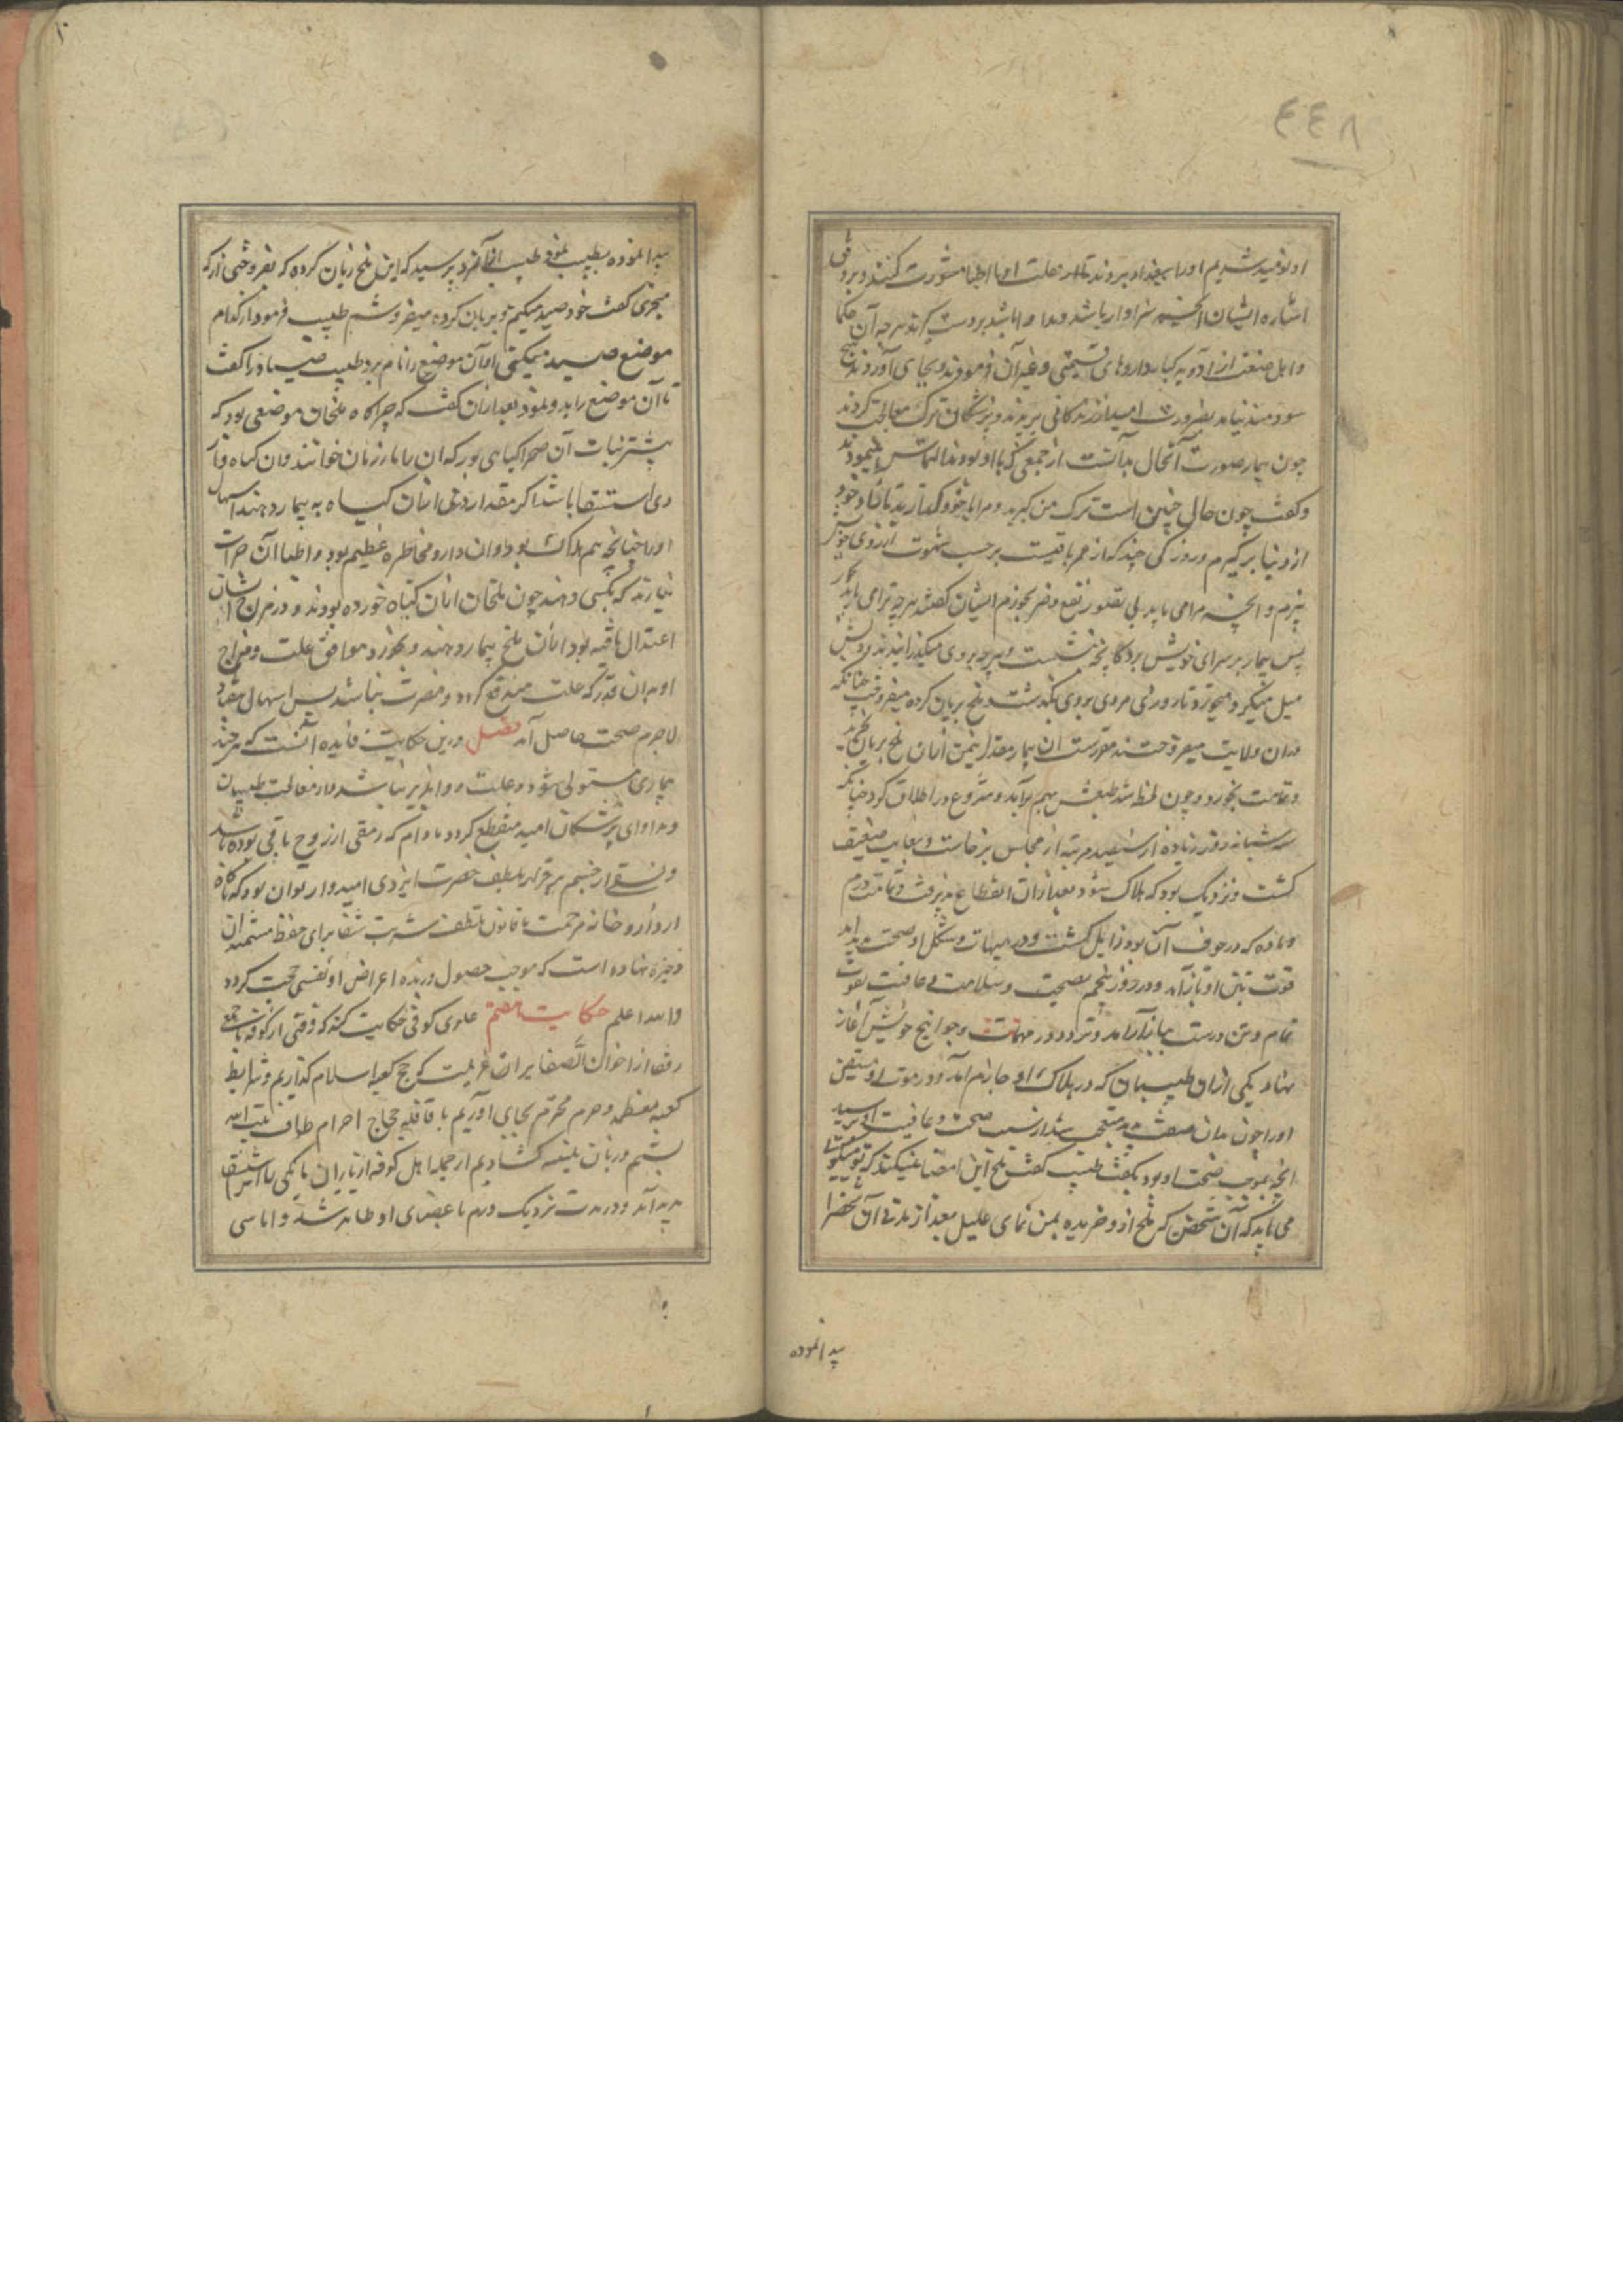 ٤٤٨
او نومید شدیم او را ببغداد بردند تا در علت او با اطبا مشورت کنند و بر وفق
اشاره ایشان آنچه سزاوار باشد مداوا باشد بدوست کردند هرچه آن حکما
و اهل صنعت از ادویه کبار و داروهای قیمتی و غیر آن فرمودند و بجای آوردند هیچ
سودمند نیامد بضرورت امید از زندگانی بریدند و پزشکان ترک معالجت کردند
چون بیمار صورت آنحال بدانست از جمعی که با او بودند التماس نمود
و گفت چون حال چنین است ترک من گیرید و مرا با خود گذارید تا زاد خود
از دنیا برگیرم و روزکی چند که از عمر باقیست بر حسب شهوت آرزوی خویش
بپزم و آنچه مرا می باید بی تصور نفع و ضر بخورم ایشان گفتند هرچه ترا می باید بخور
پس بیمار بر سرای خویش بر دکانچه نشست و هرچه بروی میگذرانیدند بدو
میل میکرد و میخورد تا روزی مردی بروی بگذشت و ملخ بریان کرده میفروخت چنانکه
در آن ولایت میفروختند مقدار یک من از آن ملخ بریان بخرید
و تمامت بخورد و چون لحظه شد طبعش بهم برآمد و شروع در اطلاق کرد چنانکه
سه شبانه روز زیاده از سیصد مرتبه از مجلس برخاست و بغایت ضعیف
گشت و نزدیک بود که هلاک شود بعد از آن انقطاع پذیرفت و تمامت ورم
و ماده که در جوف آن بود زایل گشت و در هیات و شکل او صحت پدید آمد
قوت بتن او باز آمد و در روز پنجم بصحت و سلامت و عافیت بقوت
تمام و تن درست ببازار آمد و تردد در مهمات و حوایج خویش آغاز
نهاد یکی از آن طبیبان که در هلاک او جازم آمد و در موت او متیقن
او را چون بدان صفت بدید متعجب شد از سبب صحت و عافیت او پرسید
آنچه بموجب صحت او بود بگفت طبیب گفت ملخ این اقتضا نمیکند که تو میگویی
می باید که آن شخص که ملخ از او خریده بمن نمای علیل بعد از مدتی آن شخص را
پیدا نموده
پیدا نموده بطبیب نمود طبیب از آنمرد پرسید که این ملخ بریان کرده که بفروختی از که
میخری گفت خود صید میکنم و بریان کرده میفروشم طبیب فرمود از کدام
موضع صید میکنی او آن موضع را نام برد طبیب صیاد را گفت
تا آن موضع را بدو نمود بعد از آن گفت که چراگاه ملخان موضعی بود که
بیشتر نبات آن صحرا گیاهی بود که آن را مازریون خوانند و آن گیاه
استسقا باشد اگر مقدار دو درم از آن گیاه به بیمار دهند اسهال
او را چنانچه بیم هلاک بود و آن دارو مخاطره عظیم بود و اطبا آن جرات
نیارند که بکسی دهند چون ملخان از آن گیاه خورده بودند و در مزاج ایشان
اعتدال یافته بود از آن ملخ بیمار دهند و بخورد موافق علت و مزاج
او بدان قدر که علت مندفع گردد و مضرت نباشد پس اسهال افتاد
لاجرم صحت حاصل آمد فصل درین حکایت فایده آنست که هرچند
بیماری مستولی شود و علت دوا پذیر نباشد و از معالجت طبیبان
و مداوای پزشکان امید منقطع گردد مادام که رمقی از روح باقی بوده باشد
و نفسی از جسم برقرار بلطف حضرت ایزدی امیدوار توان بود که ناگاه
از داروخانه مرحمت با قانون تلطف شربت شفا برای حفظ مستمندان
ذخیره نهاده است که موجب حصول و زنده اعراض او نفسی صحت گردد
والله اعلم حکایت هفتم علوی کوفی حکایت کند که وقتی از کوفه با جمع
رفقا از اخوان الصفا بر آن عزیمت که حج کعبه اسلام گذاریم و شرایط
کعبه معظمه و حرم محترم بجای آوریم با قافله حجاج احرام طواف بیت الله
بستیم و زبان بلبیه گشادیم از جمله اهل کوفه از یاران ما یکی را استسقا
پدید آمد و در مدت نزدیک ورم باعضای او ظاهر شد و اماسی